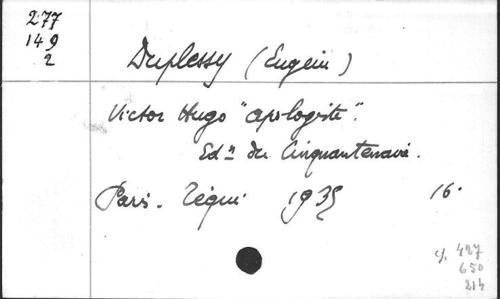 277
149
2
Duplessy (Eugène)
Victor Hugo "apologiste".
Edⁿ du Cinquantenaire.
Paris. Téqui 1935 16.
c/. 427
650
214